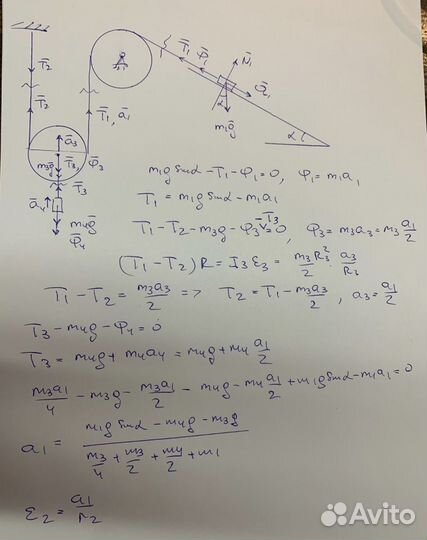 T̄₂
T̄₂
T̄₁, ā₁
T̄₁ Φ̄₁
N̄₁
ā₁
α
m₁ḡ
α
ā₃
m₃ḡ T̄₃, Φ̄₃
T̄₃
ā₄
m₄ḡ
Φ̄₄
m₁g sinα - T₁ - Φ₁ = 0, Φ₁ = m₁a₁
T₁ = m₁g sinα - m₁a₁
T₁ - T₂ - m₃g - Φ₃ - T₃ = 0, Φ₃ = m₃a₃ = m₃ a₁/2
(T₁ - T₂) R = I₃ε₃ = m₃R₃²/2 · a₃/R₃
T₁ - T₂ = m₃a₃/2 => T₂ = T₁ - m₃a₃/2, a₃ = a₁/2
T₃ - m₄g - Φ₄ = 0
T₃ = m₄g + m₄a₄ = m₄g + m₄ a₁/2
m₃a₁/4 - m₃g - m₃a₁/2 - m₄g - m₄ a₁/2 + m₁g sinα - m₁a₁ = 0
a₁ = (m₁g sinα - m₄g - m₃g) / (m₃/4 + m₃/2 + m₄/2 + m₁)
ε₂ = a₁/r₂
Avito